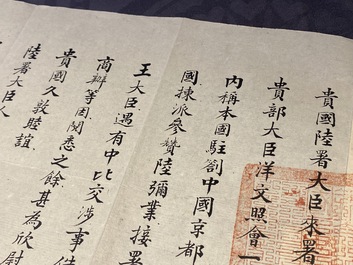 貴國陸署大臣來署
貴部大臣洋文照會一
內稱本國駐劄中國京都
國揀派參贊陸彌業接署
王大臣遇有中比交涉事件
商辦等因閱悉之餘甚為欣慰
貴國久敦睦誼
陸署大臣人